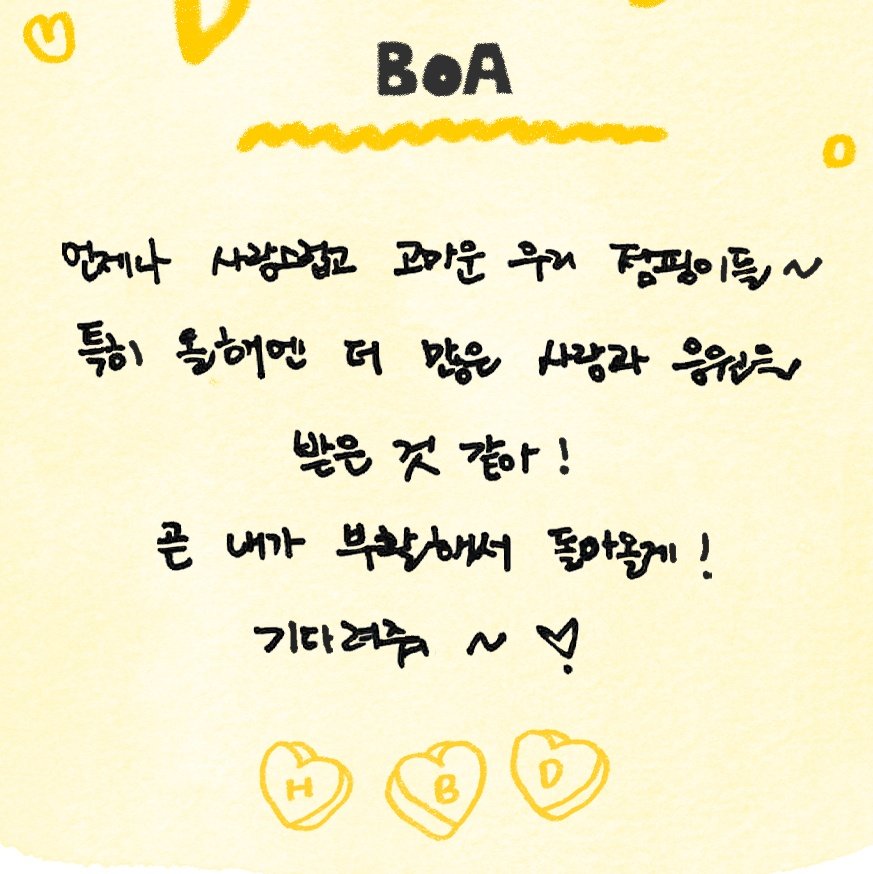 BoA
언제나 사랑스럽고 고마운 우리 점핑이들~
특히 올해엔 더 많은 사랑과 응원을
받은 것 같아!
곧 내가 부활해서 돌아올게!
기다려줘 ~ ♡
H B D